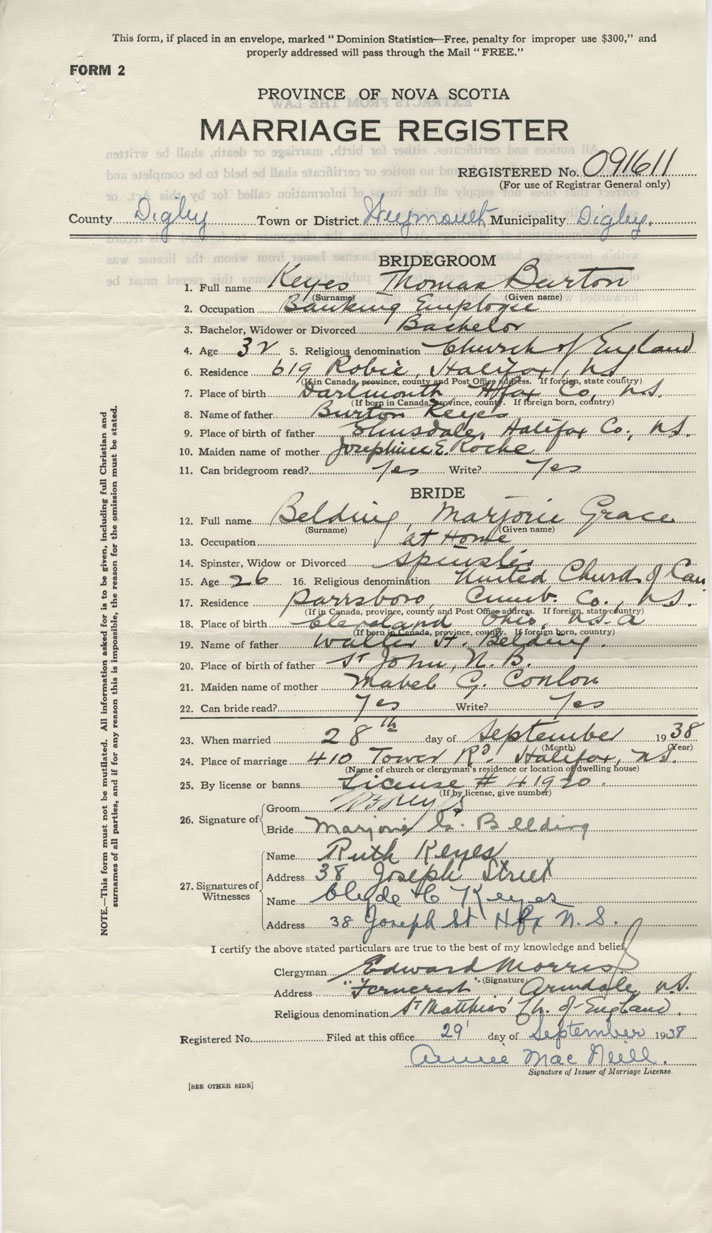 This form, if placed in an envelope, marked "Dominion Statistics—Free, penalty for improper use $300," and
properly addressed will pass through the Mail "FREE."
FORM 2
PROVINCE OF NOVA SCOTIA
MARRIAGE REGISTER
REGISTERED No. 091611
(For use of Registrar General only)
County Digby Town or District Weymouth Municipality Digby.
BRIDEGROOM
1. Full name Keyes Thomas Burton
(Surname) (Given name)
2. Occupation Banking Employee
3. Bachelor, Widower or Divorced Bachelor
4. Age 32 5. Religious denomination Church of England
6. Residence 619 Robie, Halifax, N.S.
(If in Canada, province, county and Post Office address. If foreign, state country)
7. Place of birth Dartmouth Hfax Co., N.S.
(If born in Canada, province, county. If foreign born, country)
8. Name of father Burton Keyes
9. Place of birth of father Elmsdale, Halifax Co., N.S.
10. Maiden name of mother Josephine E. Roche
11. Can bridegroom read? Yes Write? Yes
BRIDE
12. Full name Belding, Marjorie Grace
(Surname) (Given name)
13. Occupation at Home
14. Spinster, Widow or Divorced Spinster
15. Age 26 16. Religious denomination United Church of Can
17. Residence Parrsboro, Cumb. Co., N.S.
(If in Canada, province, county and Post Office address. If foreign, state country)
18. Place of birth Cleveland Ohio, U.S.A
(If born in Canada, province, county. If foreign born, country)
19. Name of father Walter H. Belding.
20. Place of birth of father St John, N.B.
21. Maiden name of mother Mabel G. Conlon
22. Can bride read? Yes Write? Yes
23. When married 28th day of September 1938
(Month) (Year)
24. Place of marriage 410 Tower Rd. Halifax, N.S.
(Name of church or clergyman's residence or location of dwelling house)
25. By license or banns License # 41920.
(If by license, give number)
26. Signature of
Groom Keyes
Bride Marjorie G. Belding
27. Signatures of Witnesses
Name Ruth Keyes
Address 38 Joseph Street
Name Clyde C Keyes
Address 38 Joseph St Hfx N.S.
I certify the above stated particulars are true to the best of my knowledge and belief
Clergyman Edward Morris
(Signature
Address "Ferncrest" Armdale, N.S.
Religious denomination St Matthias' Ch. of England
Registered No. Filed at this office 29 day of September 1938
Annie MacNeill.
Signature of Issuer of Marriage License.
[SEE OTHER SIDE]
NOTE.—This form must not be mutilated. All information asked for is to be given, including full Christian and
surnames of all parties, and if for any reason this is impossible, the reason for the omission must be stated.